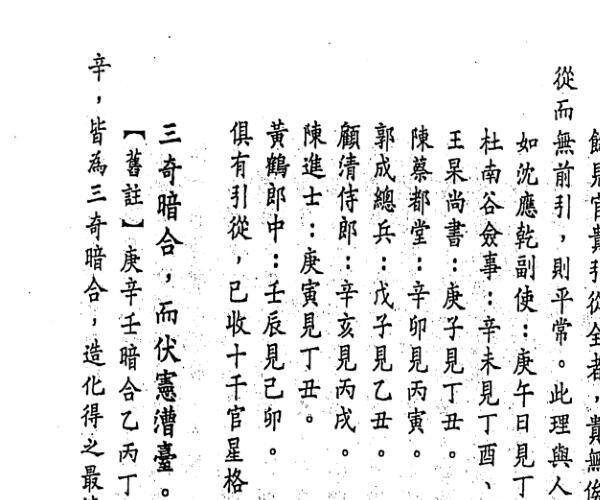 餘見官貴拜從全者，貴無
從而無前引，則平常。此理與人
如沈應乾副使：庚午日見丁
杜南谷僉事：辛未見丁酉、
王杲尚書：庚子見丁丑。
陳蔡都堂：辛卯見丙寅。
郭成總兵：戊子見乙丑。
顧清侍郎：辛亥見丙戌。
陳進士：庚寅見丁丑。
黃鶴郎中：壬辰見己卯。
俱有引從，已收十干官星格
三奇暗合，而伏憲漕臺。
【舊註】庚辛壬暗合乙丙丁
辛，皆為三奇暗合，造化得之最